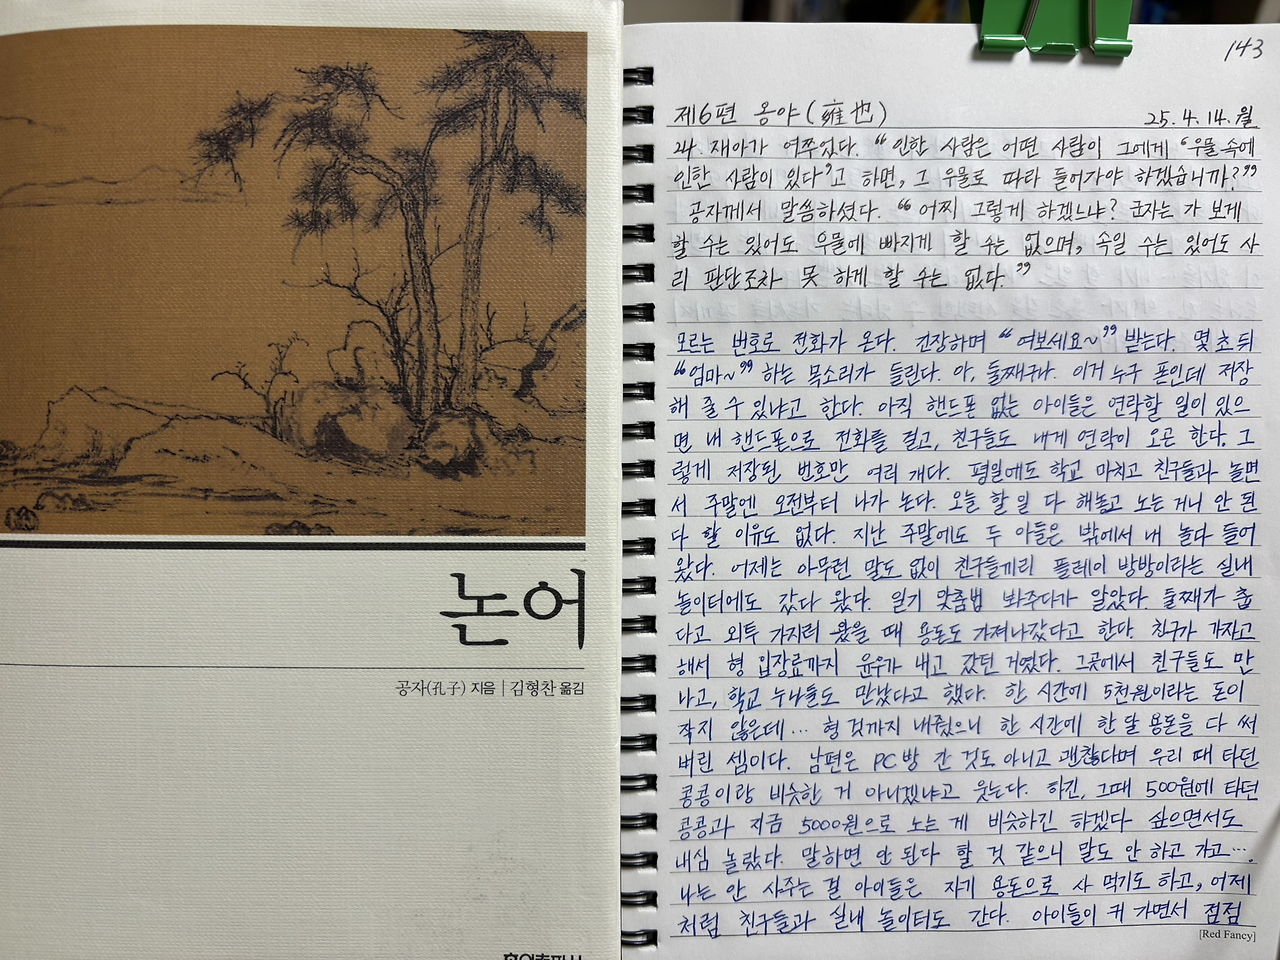 논어
공자(孔子) 지음 | 김형찬 옮김
143
제6편 옹야(雍也)
25.4.14.월
24. 재아가 여쭈었다. "인한 사람은 어떤 사람이 그에게 '우물 속에
인한 사람이 있다'고 하면, 그 우물로 따라 들어가야 하겠습니까?"
공자께서 말씀하셨다. "어찌 그렇게 하겠느냐? 군자는 가 보게
할 수는 있어도 우물에 빠지게 할 수는 없으며, 속일 수는 있어도 사
리 판단조차 못 하게 할 수는 없다."
모르는 번호로 전화가 온다. 긴장하며 "여보세요~" 받는다. 몇 초 뒤
"엄마~" 하는 목소리가 들린다. 아, 둘째구나. 이거 누구 폰인데 저장
해 줄 수 있냐고 한다. 아직 핸드폰 없는 아이들은 연락할 일이 있으
면 내 핸드폰으로 전화를 걸고, 친구들도 내게 연락이 오곤 한다. 그
렇게 저장된 번호만 여러 개다. 평일에도 학교 마치고 친구들과 놀면
서 주말엔 오전부터 나가 논다. 오늘 할 일 다 해놓고 노는 거니 안 된
다 할 이유도 없다. 지난 주말에도 두 아들은 밖에서 내 놀다 들어
왔다. 어제는 아무런 말도 없이 친구들끼리 플레이 방방이라는 실내
놀이터에도 갔다 왔다. 일기 맞춤법 봐주다가 알았다. 둘째가 춥
다고 외투 가지러 왔을 때 용돈도 가져나갔다고 한다. 친구가 가자고
해서 형 입장료까지 윤우가 내고 갔던 거였다. 그곳에서 친구들도 만
나고, 학교 누나들도 만났다고 했다. 한 시간에 5천원이라는 돈이
작지 않은데... 형 것까지 내줬으니 한 시간에 한 달 용돈을 다 써
버린 셈이다. 남편은 PC방 간 것도 아니고 괜찮다며 우리 때 타던
콩콩이랑 비슷한 거 아니겠냐고 웃는다. 하긴, 그때 500원에 타던
콩콩과 지금 5000원으로 노는 게 비슷하긴 하겠다 싶으면서도
내심 놀랐다. 말하면 안 된다 할 것 같으니 말도 안 하고 가고....
나는 안 사주는 걸 아이들은 자기 용돈으로 사 먹기도 하고, 어제
처럼 친구들과 실내 놀이터도 간다. 아이들이 커 가면서 점점
[Red Fancy]